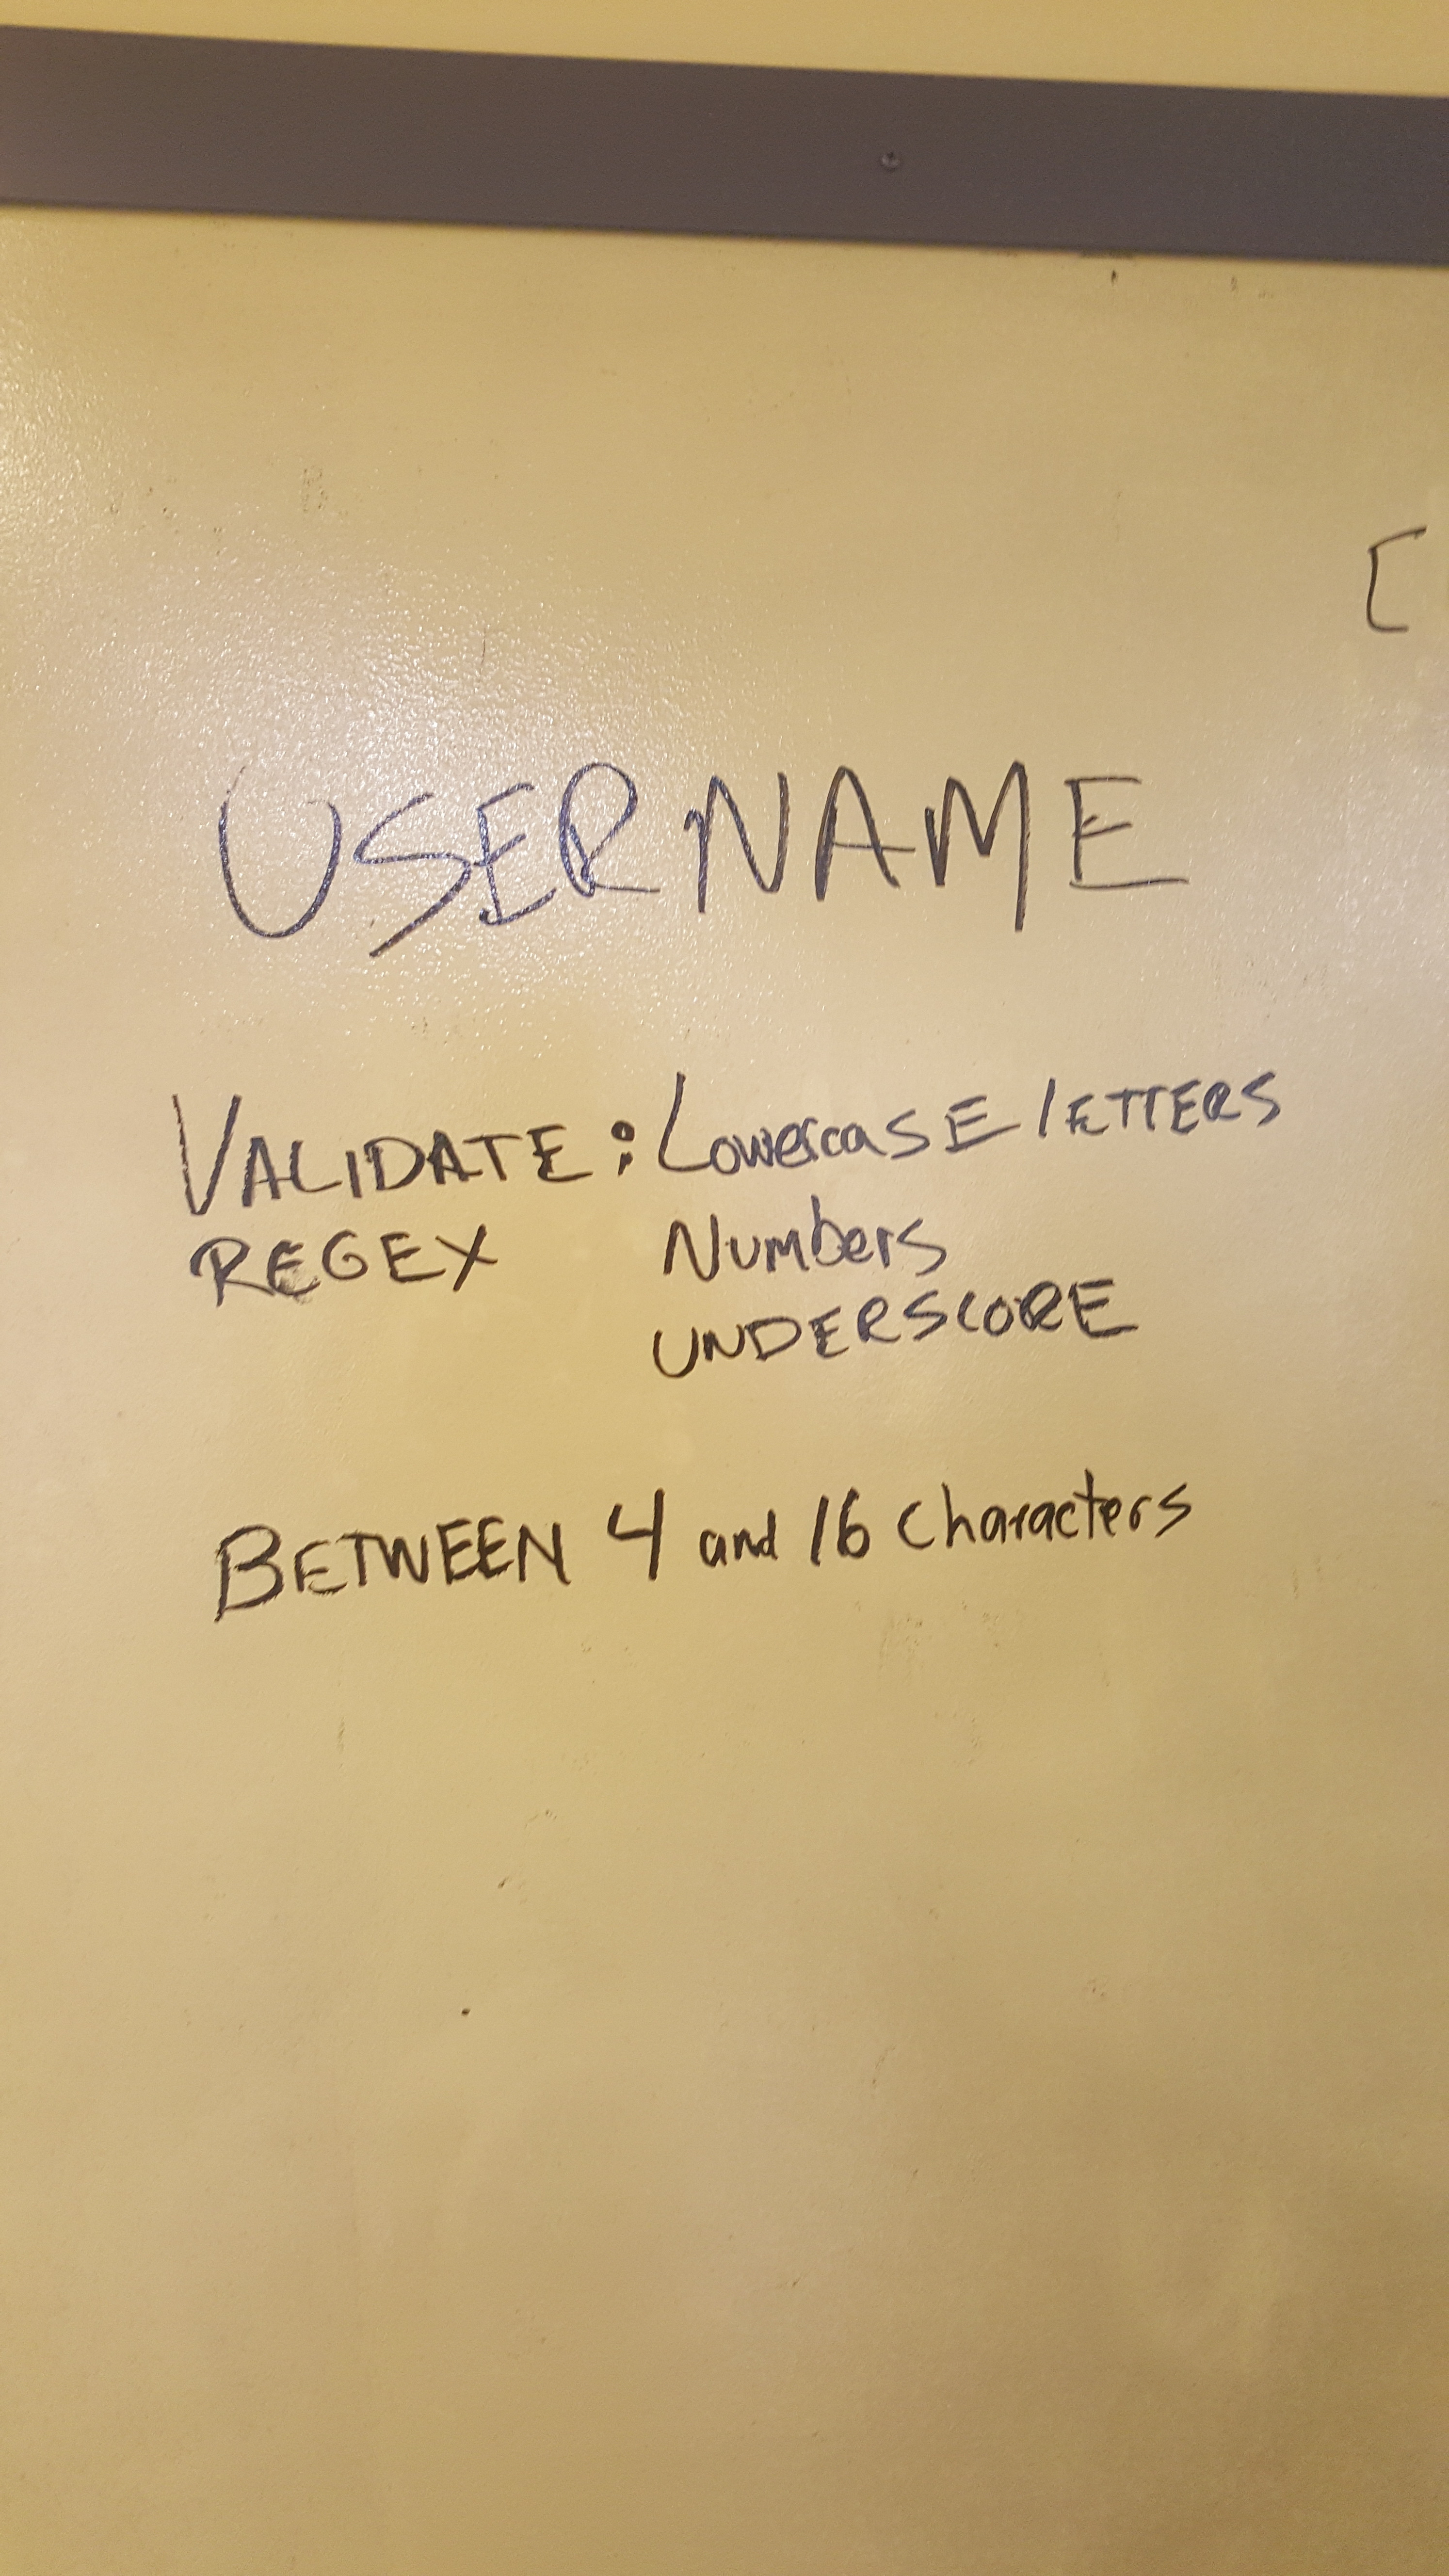 [
USERNAME
VALIDATE: LowercasE lETTERS
REGEX Numbers
UNDERSCORE
BETWEEN 4 and 16 characters